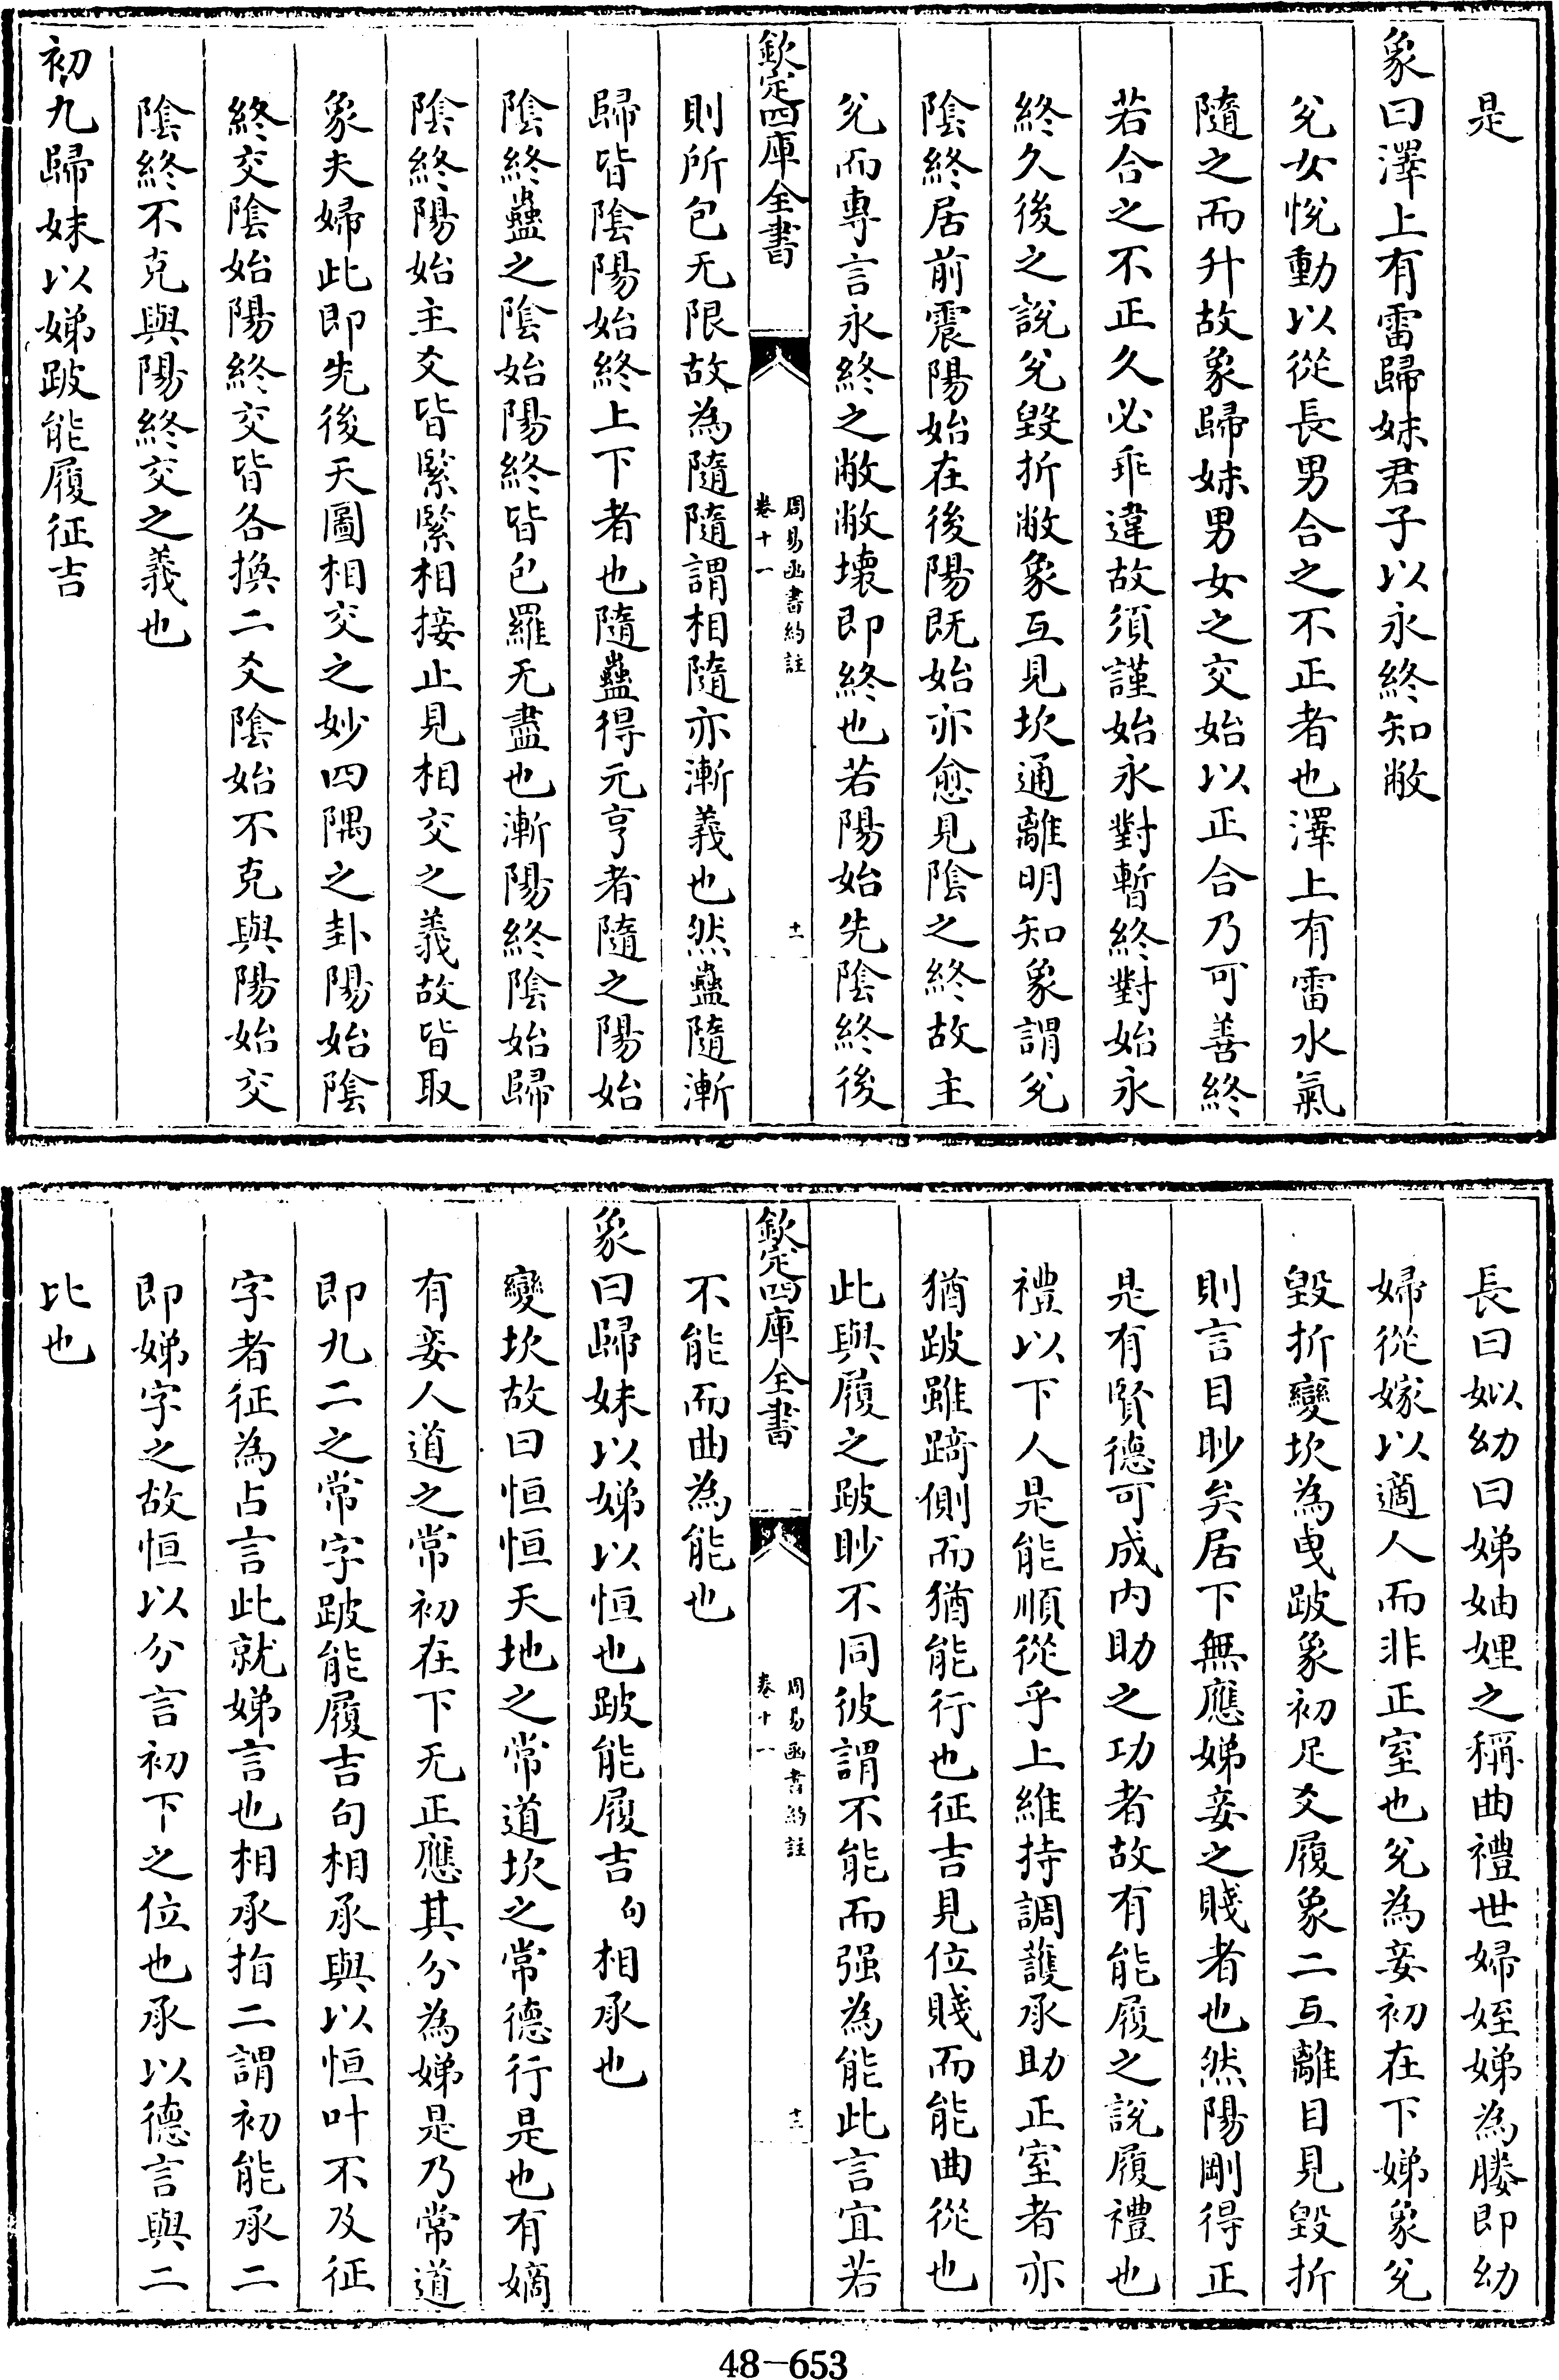 是
象曰澤上有雷歸妹君子以永終知敝
兊女恱動以從長男合之不正者也澤上有雷水氣
隨之而升故象歸妹男女之交始以正合乃可善終
若合之不正久必乖違故須謹始永對暫終對始永
終久後之說兊毀折敝象互見坎通離明知象謂兊
隂終居前震陽始在後陽既始亦愈見隂之終故主
兊而專言永終之敝敝壞即終也若陽始先隂終後
欽定四庫全書
周易函書約註
卷十一
十一
則所包无限故為隨隨謂相隨隨亦漸義也然蠱隨漸
歸皆隂陽始終上下者也隨蠱得元亨者隨之陽始
隂終蠱之隂始陽終皆包羅无盡也漸陽終隂始歸
隂終陽始主爻皆緊緊相接止見相交之義故皆取
象夫婦此即先後天圖相交之妙四隅之卦陽始隂
終交隂始陽終交皆各換二爻隂始不克與陽始交
隂終不克與陽終交之義也
初九歸妹以娣跛能履征吉
長曰姒幼曰娣妯娌之稱曲禮世婦姪娣為媵即幼
婦從嫁以適人而非正室也兊為妾初在下娣象兊
毀折變坎為曳跛象初足爻履象二互離目見毀折
則言目眇矣居下無應娣妾之賤者也然陽剛得正
是有賢德可成内助之功者故有能履之說履禮也
禮以下人是能順從乎上維持調護承助正室者亦
猶跛雖踦側而猶能行也征吉見位賤而能曲從也
此與履之跛眇不同彼謂不能而强為能此言宜若
欽定四庫全書
周易函書約註
卷十一
十二
不能而曲為能也
象曰歸妹以娣以恒也跛能履吉句相承也
變坎故曰恒恒天地之常道坎之常德行是也有嫡
有妾人道之常初在下无正應其分為娣是乃常道
即九二之常字跛能履吉句相承與以恒叶不及征
字者征為占言此就娣言也相承指二謂初能承二
即娣字之故恒以分言初下之位也承以德言與二
比也
48-653